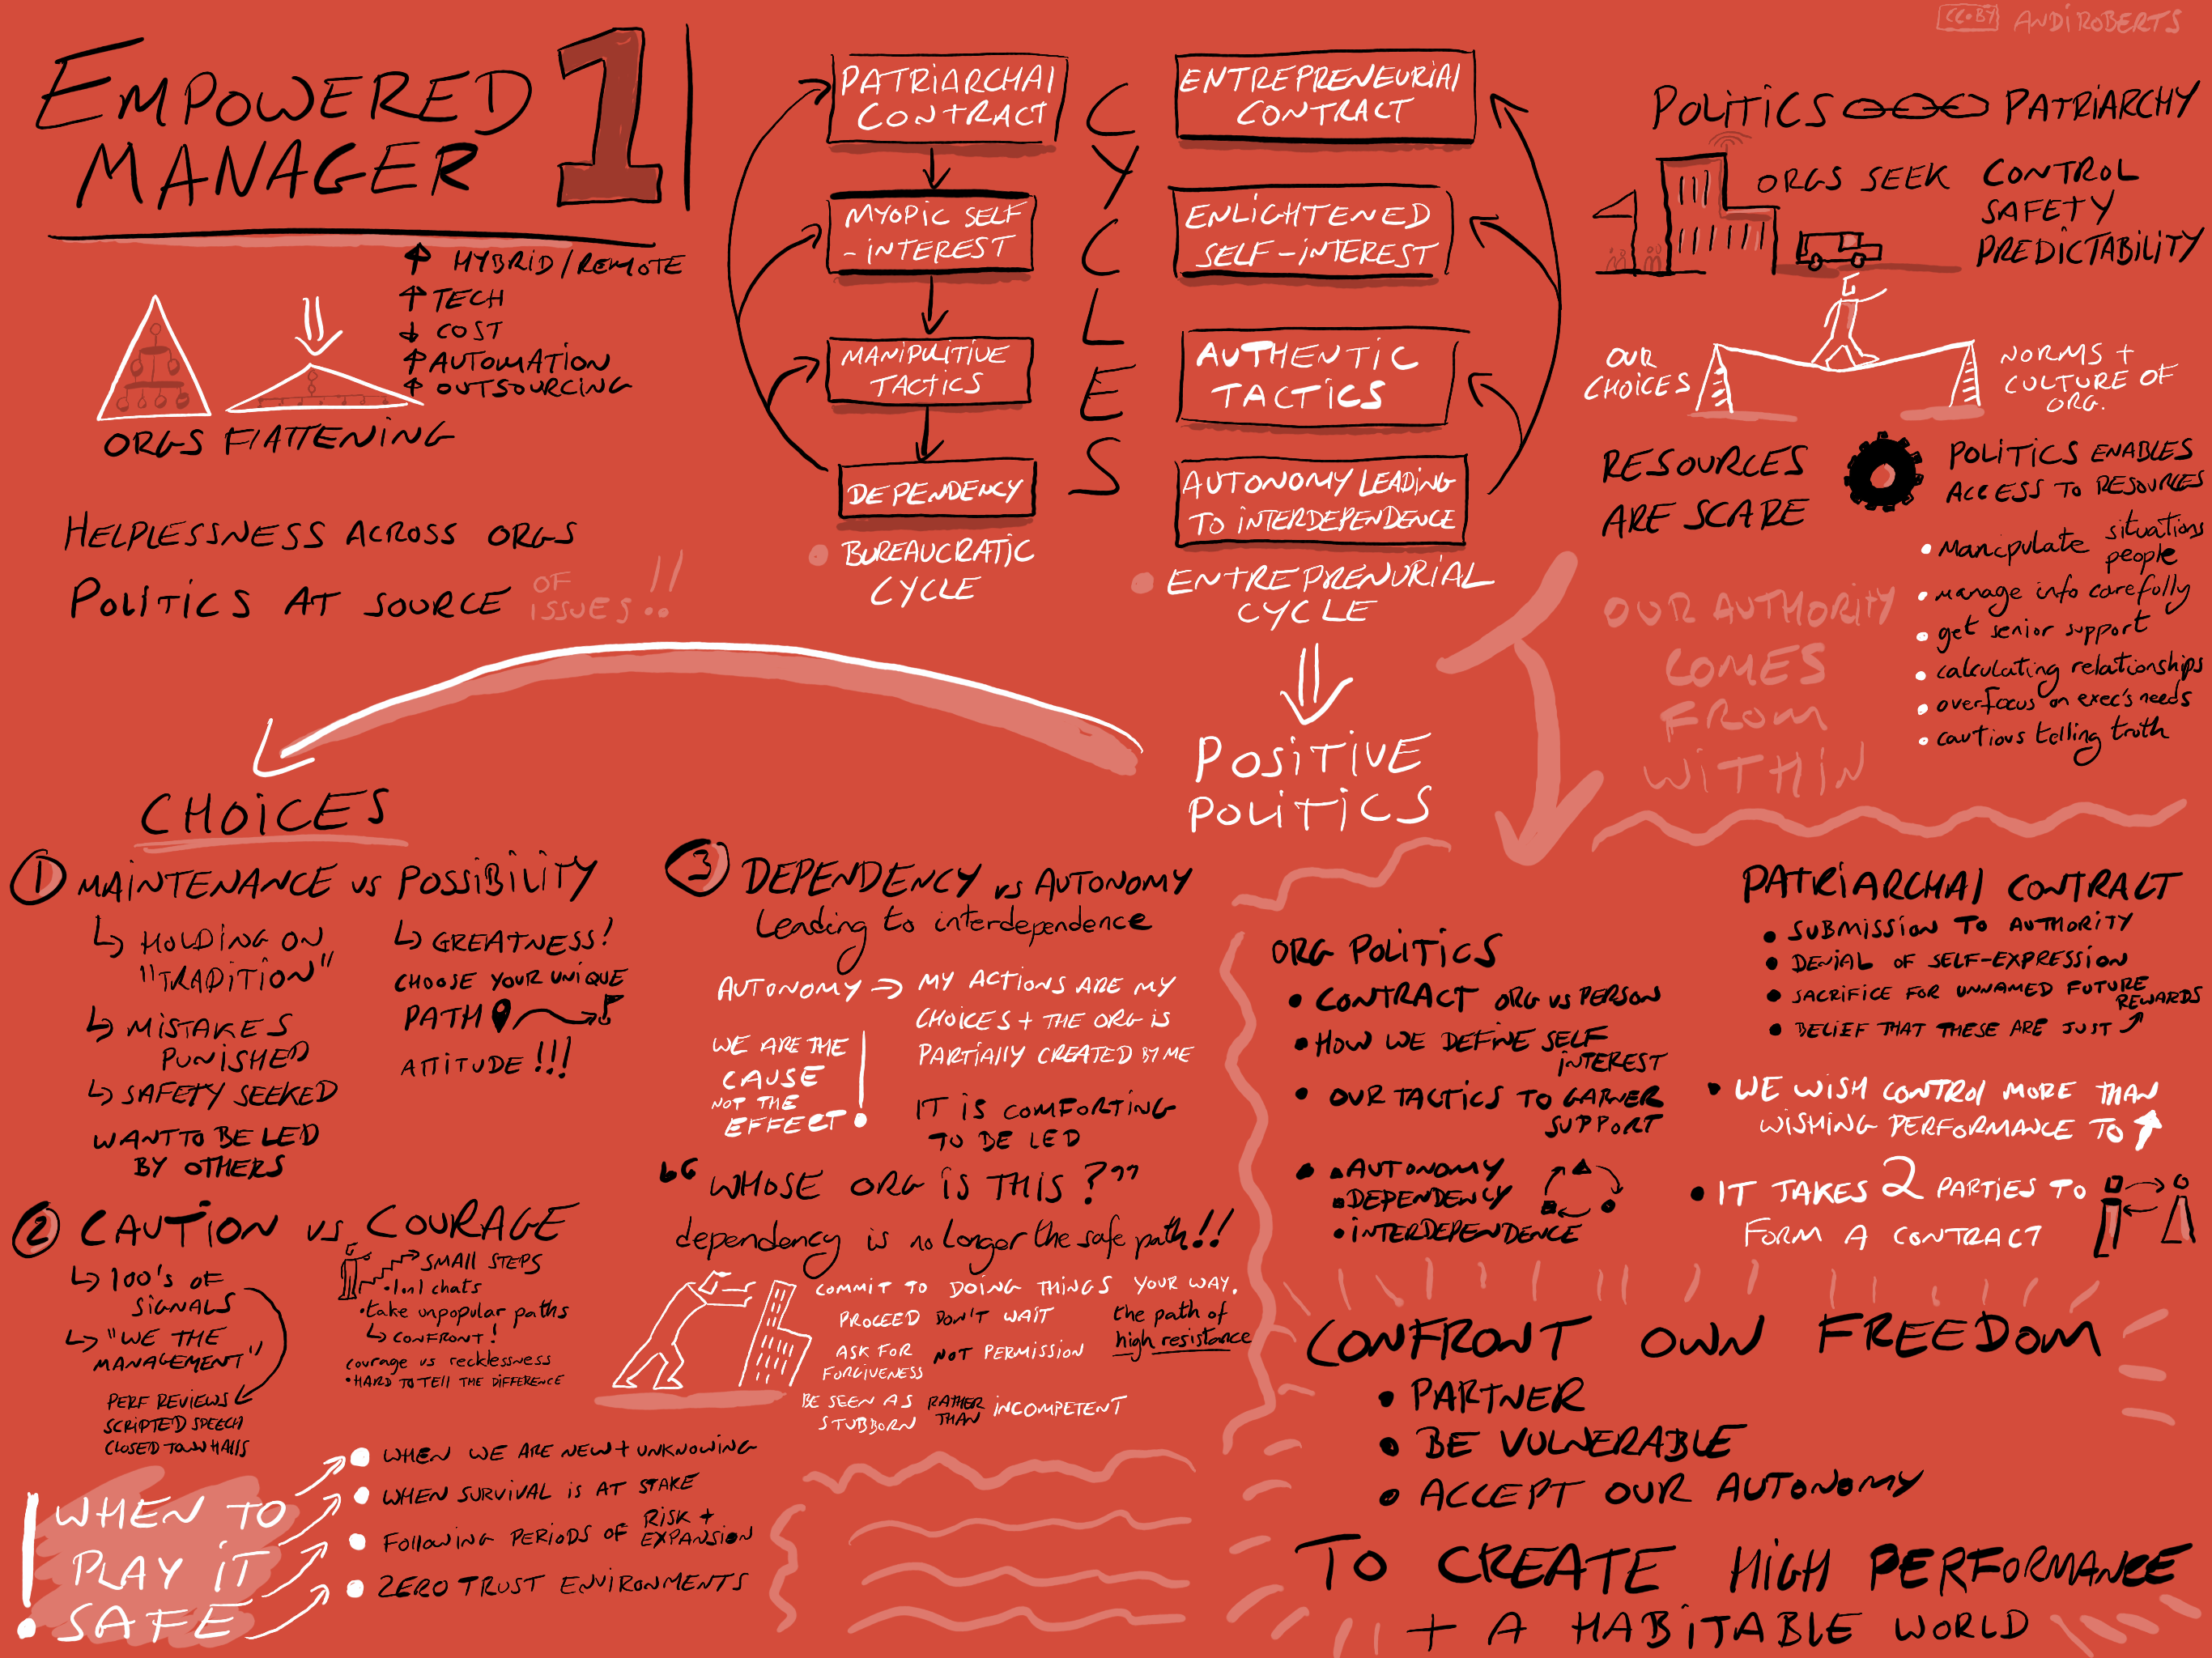 CC·BY ANDIROBERTS
EMPOWERED
MANAGER
1
↑ HYBRID/REMOTE
↑ TECH
↓ COST
↑ AUTOMATION
↑ OUTSOURCING
ORGS FLATTENING
HELPLESSNESS ACROSS ORGS
POLITICS AT SOURCE OF
ISSUES!!
PATRIARCHAL
CONTRACT
MYOPIC SELF
-INTEREST
MANIPULITIVE
TACTICS
DEPENDENCY
BUREAUCRATIC
CYCLE
CYCLES
ENTREPRENEURIAL
CONTRACT
ENLIGHTENED
SELF-INTEREST
AUTHENTIC
TACTICS
AUTONOMY LEADING
TO INTERDEPENDENCE
ENTREPRENURIAL
CYCLE
POSITIVE
POLITICS
POLITICS PATRIARCHY
ORGS SEEK CONTROL
SAFETY
PREDICTABILITY
OUR
CHOICES
NORMS +
CULTURE OF
ORG.
RESOURCES
ARE SCARE
POLITICS ENABLES
ACCESS TO RESOURCES
• Manipulate situations
people
• manage info carefully
• get senior support
• calculating relationships
• overfocus on exec's needs
• cautious telling truth
OUR AUTHORITY
COMES
FROM
WITHIN
CHOICES
① MAINTENANCE VS POSSIBILITY
↳ HOLDING ON
"TRADITION"
↳ MISTAKES
PUNISHED
↳ SAFETY SEEKED
WANT TO BE LED
BY OTHERS
↳ GREATNESS!
CHOOSE YOUR UNIQUE
PATH
ATTITUDE!!!
② CAUTION VS COURAGE
↳ 100's OF
SIGNALS
↳ "WE THE
MANAGEMENT"
PERF REVIEWS
SCRIPTED SPEECH
CLOSED TOWN HALLS
SMALL STEPS
• 1on1 chats
• take unpopular paths
↳ CONFRONT!
courage vs recklessness
• HARD TO TELL THE DIFFERENCE
! WHEN TO
PLAY IT
SAFE
• WHEN WE ARE NEW + UNKNOWING
• WHEN SURVIVAL IS AT STAKE
• FOLLOWING PERIODS OF RISK +
EXPANSION
• ZERO TRUST ENVIRONMENTS
③ DEPENDENCY VS AUTONOMY
Leading to interdependence
AUTONOMY → MY ACTIONS ARE MY
CHOICES + THE ORG IS
PARTIALLY CREATED BY ME
WE ARE THE
CAUSE
NOT THE
EFFECT!
IT IS COMFORTING
TO BE LED
"WHOSE ORG IS THIS?"
dependency is no longer the safe path!!
COMMIT TO DOING THINGS YOUR WAY.
PROCEED DON'T WAIT
ASK FOR
FORGIVENESS NOT PERMISSION
BE SEEN AS
STUBBORN RATHER
THAN INCOMPETENT
the path of
high resistance
ORG POLITICS
• CONTRACT ORG VS PERSON
• HOW WE DEFINE SELF
INTEREST
• OUR TACTICS TO GARNER
SUPPORT
• ▲AUTONOMY
■DEPENDENCY
•INTERDEPENDENCE
PATRIARCHAL CONTRACT
• SUBMISSION TO AUTHORITY
• DENIAL OF SELF-EXPRESSION
• SACRIFICE FOR UNNAMED FUTURE
REWARDS
• BELIEF THAT THESE ARE JUST
• WE WISH CONTROL MORE THAN
WISHING PERFORMANCE TO ↑
• IT TAKES 2 PARTIES TO
FORM A CONTRACT
CONFRONT OWN FREEDOM
• PARTNER
• BE VULNERABLE
• ACCEPT OUR AUTONOMY
TO CREATE HIGH PERFORMANCE
+ A HABITABLE WORLD